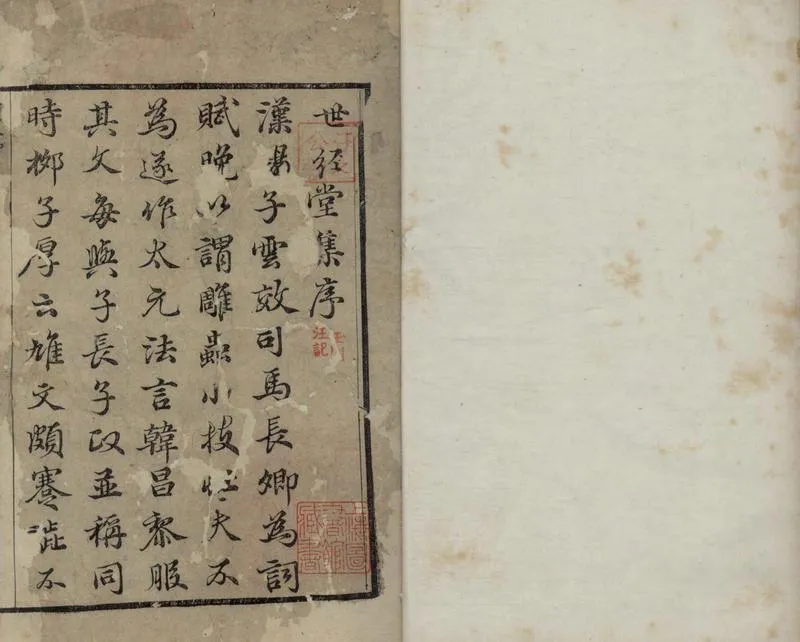 世经堂集序
漢子雲效司馬長卿為詞
賦晚以謂雕蟲小技壯夫不
為遂作太元法言韓昌黎服
其文每與子長子政並稱同
時柳子厚云雄文頗蹇澁不